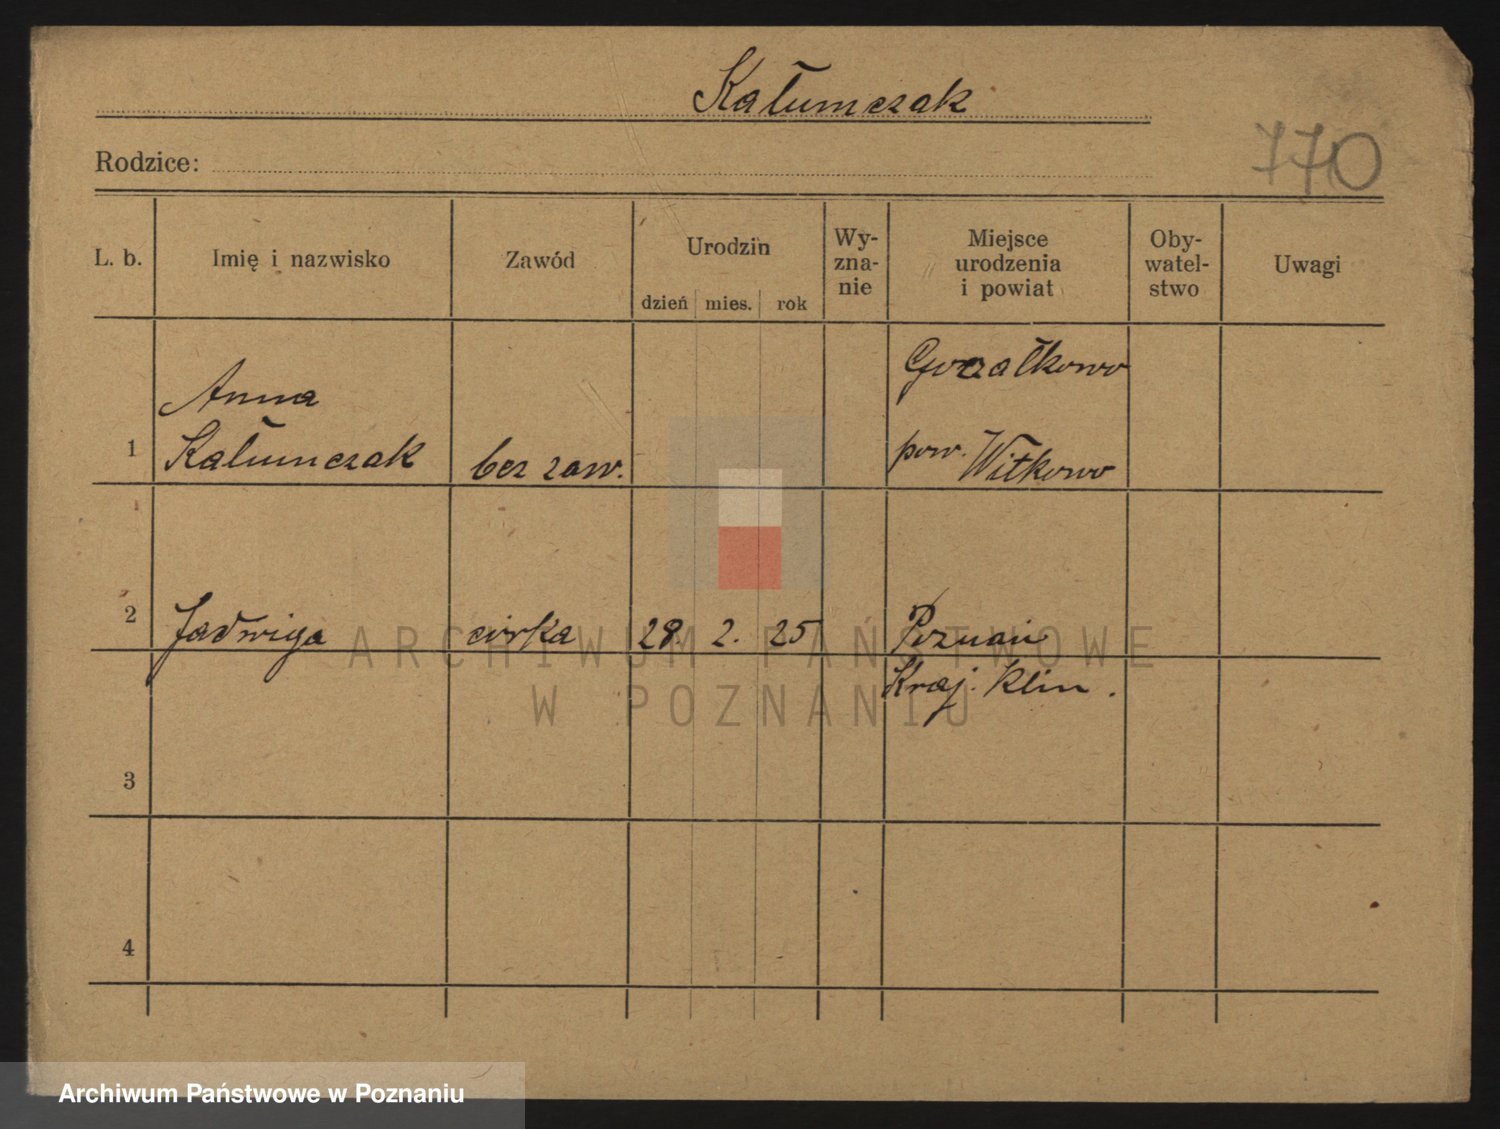 Kałumczak
Rodzice:
770
L. b. Imię i nazwisko Zawód Urodzin dzień mies. rok Wy-zna-nie Miejsce urodzenia i powiat Oby-watel-stwo Uwagi
Gorzałkowo
Anna
1 Kałumczak bez zaw. pow. Witkowo
2 Jadwiga córka 28. 2. 25 Poznań
Kraj. Klin.
3
4
ARCHIWUM PAŃSTWOWE
W POZNANIU
Archiwum Państwowe w Poznaniu